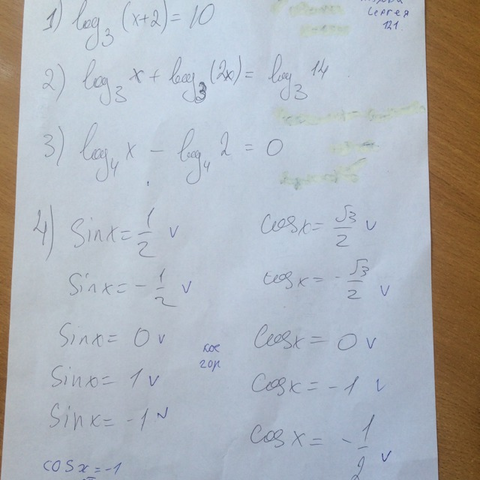 Сергея
121
1) log₃(x+2) = 10
2) log₃ x + log₃(2x) = log₃ 14
3) log₄ x − log₄ 2 = 0
4) Sin x = 1/2 v cos x = √3/2 v
Sin x = − 1/2 v cos x = − √3/2 v
Sin x = 0 v Cos x = 0 v
Sin x = 1 v Cos x = −1 v
Sin x = −1 v Cos x = − 1/2 v
cos x = −1